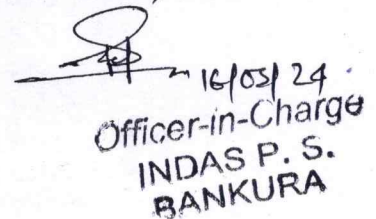 16/03/24
Officer-in-Charge
INDAS P. S.
BANKURA